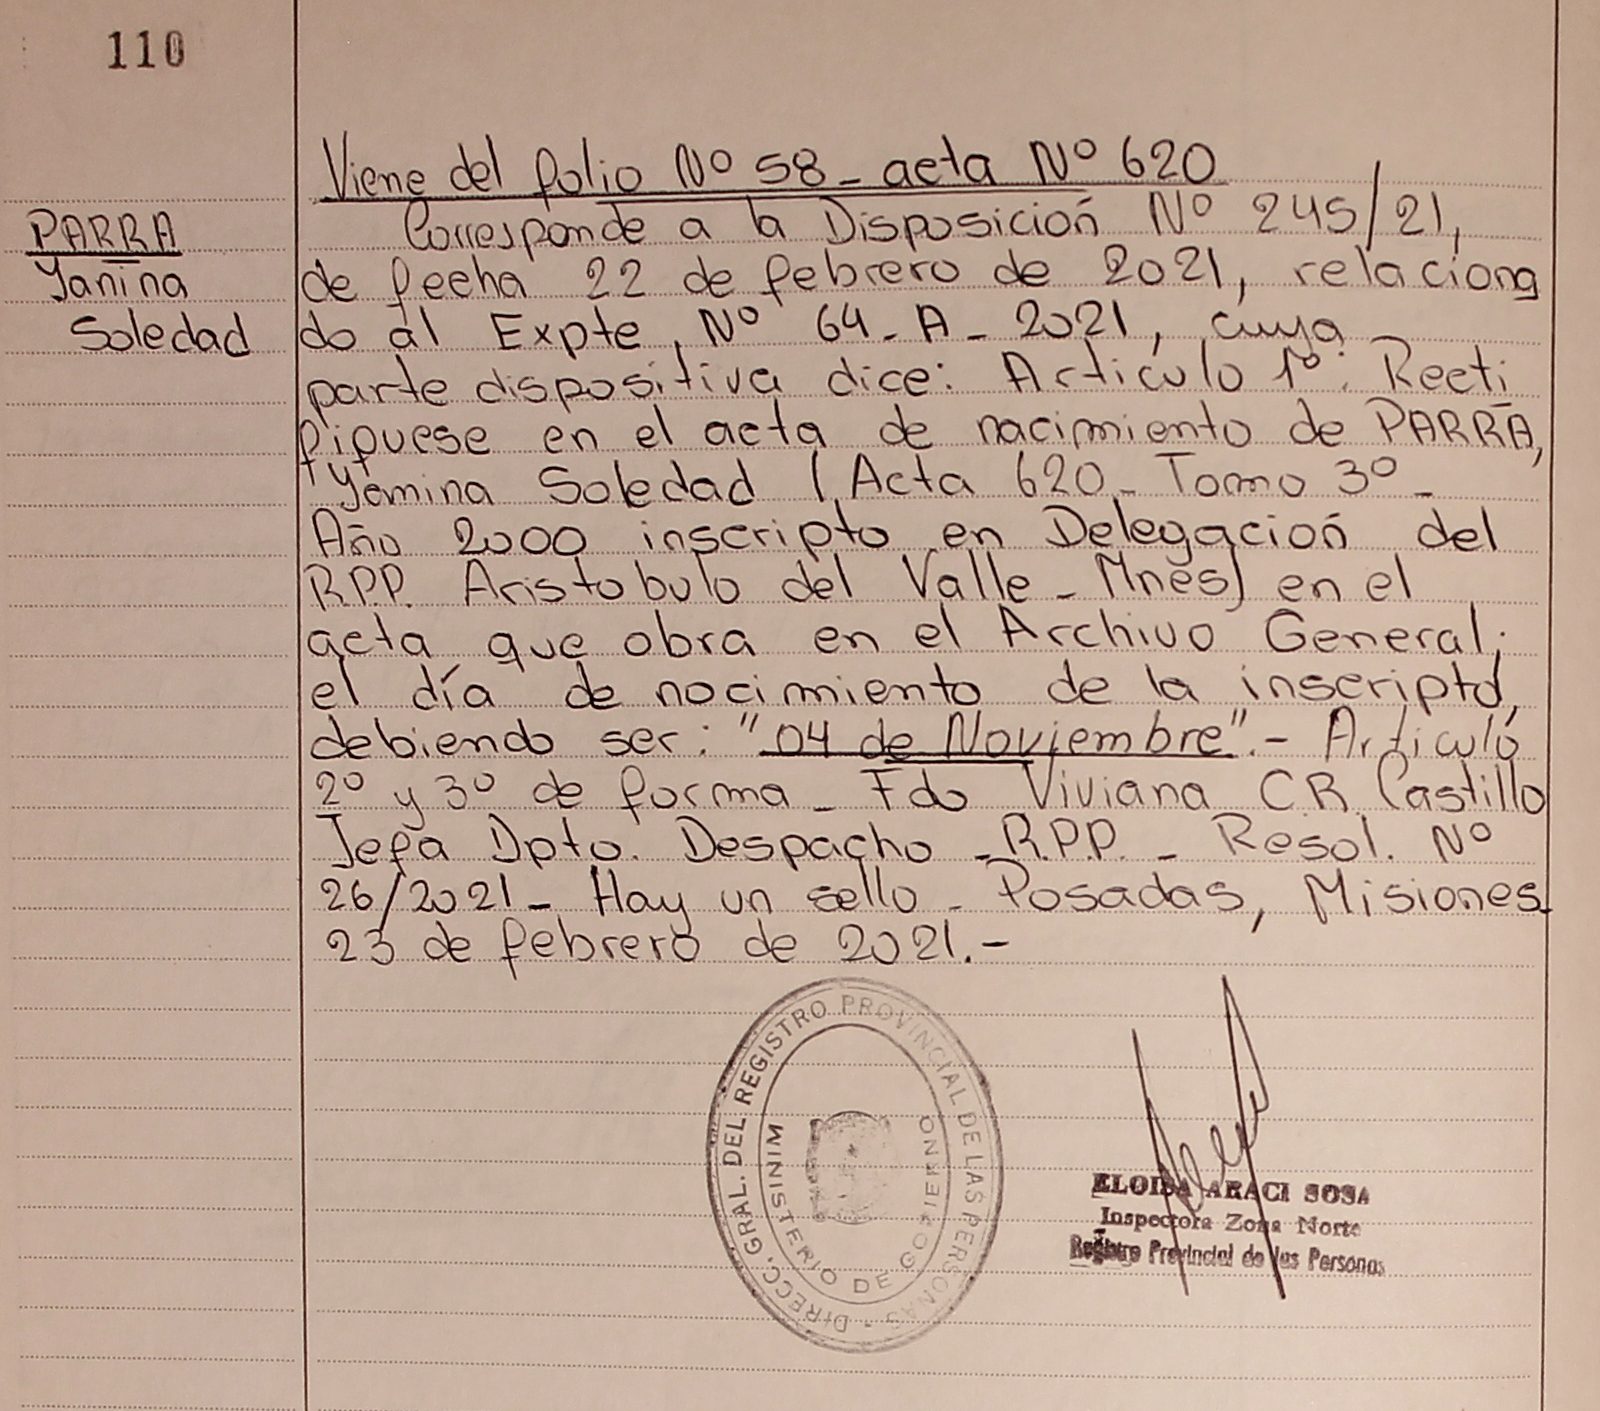 110
Viene del folio Nº 58 - acta Nº 620
PARRA
Yanina
Soledad
Corresponde a la Disposición Nº 245/21,
de fecha 22 de febrero de 2021, relaciona
do al Expte Nº 64 - A - 2021, cuya
parte dispositiva dice: Artículo 1º: Recti
fiquese en el acta de nacimiento de PARRA,
Yamina Soledad (Acta 620 - Tomo 3º -
Año 2000 inscripto en Delegación del
R.P.P. Aristobulo del Valle - Mnes) en el
acta que obra en el Archivo General;
el día de nacimiento de la inscripta,
debiendo ser: "04 de Noviembre".- Articulo
2º y 3º de forma - Fdo Viviana C R Castillo
Jefa Dpto. Despacho - R.P.P. - Resol. Nº
26/2021 - Hay un sello - Posadas, Misiones
23 de febrero de 2021.-
DIRECC. GRAL. DEL REGISTRO PROVINCIAL DE LAS PERSONAS -
MINISTERIO DE GOBIERNO
ELOISA ARACI SOSA
Inspectora Zona Norte
Registro Provincial de las Personas